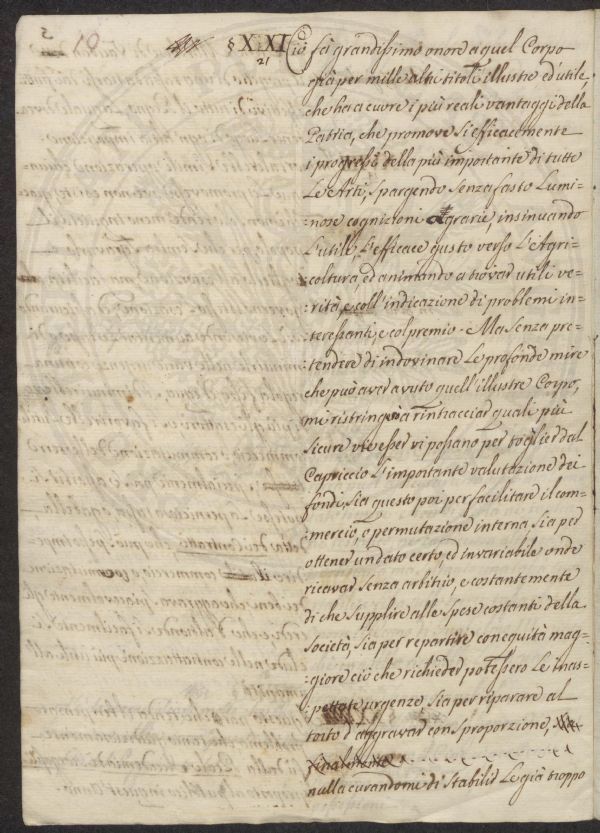 10
§ XXI Ciò fà grandissimo onore a quel Corpo
21
già per mille altri titoli illustre ed utile
che ha a cuore i più reali vantaggi della
Patria, che promove sì efficacemente
i progressi della più importante di tutte
Le Arti, spargendo senza fasto Lumi-
:nose cognizioni agrarie, insinuando
L'utile, L'efficace gusto verso L'Agri-
:coltura, ed animando a trovar utili ve-
:rità, e coll'indicazione di problemi in-
:teressanti, e col premio. Ma senza pre-
:tendere di indovinare Le profonde mire
che può aver avuto quell'illustre Corpo,
mi ristringo a rintracciar quali più
sicure vie esser vi possano per toglier dal
Capriccio L'importante valutazione dei
fondi, sia questo poi per facilitare il com-
:mercio, e permutazione interna, sia per
ottener un dato certo, ed invariabile onde
ricavar senza arbitrio, e costantemente
di che supplire alle spese costanti della
società, sia per repartire con equità mag-
:giore ciò che richieder potessero Le inas-
:pettate urgenze, sia per riparare al
torto d'aggravar con sproporzione,
nulla curandomi di stabilir Le già troppo